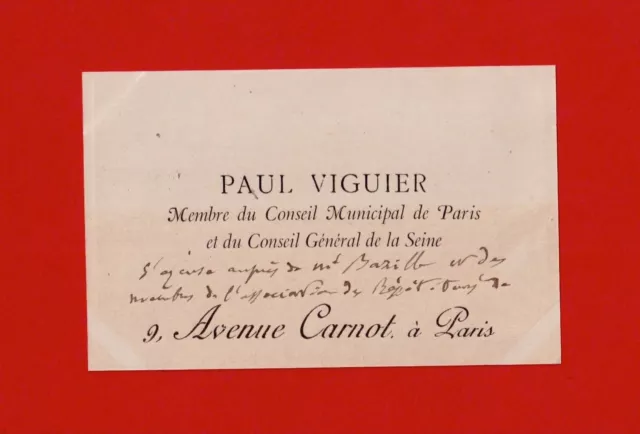 PAUL VIGUIER
Membre du Conseil Municipal de Paris
et du Conseil Général de la Seine
S'excuse auprès de Mr Bazille et des
membres de l'association des Répétiteurs de
9, Avenue Carnot, à Paris